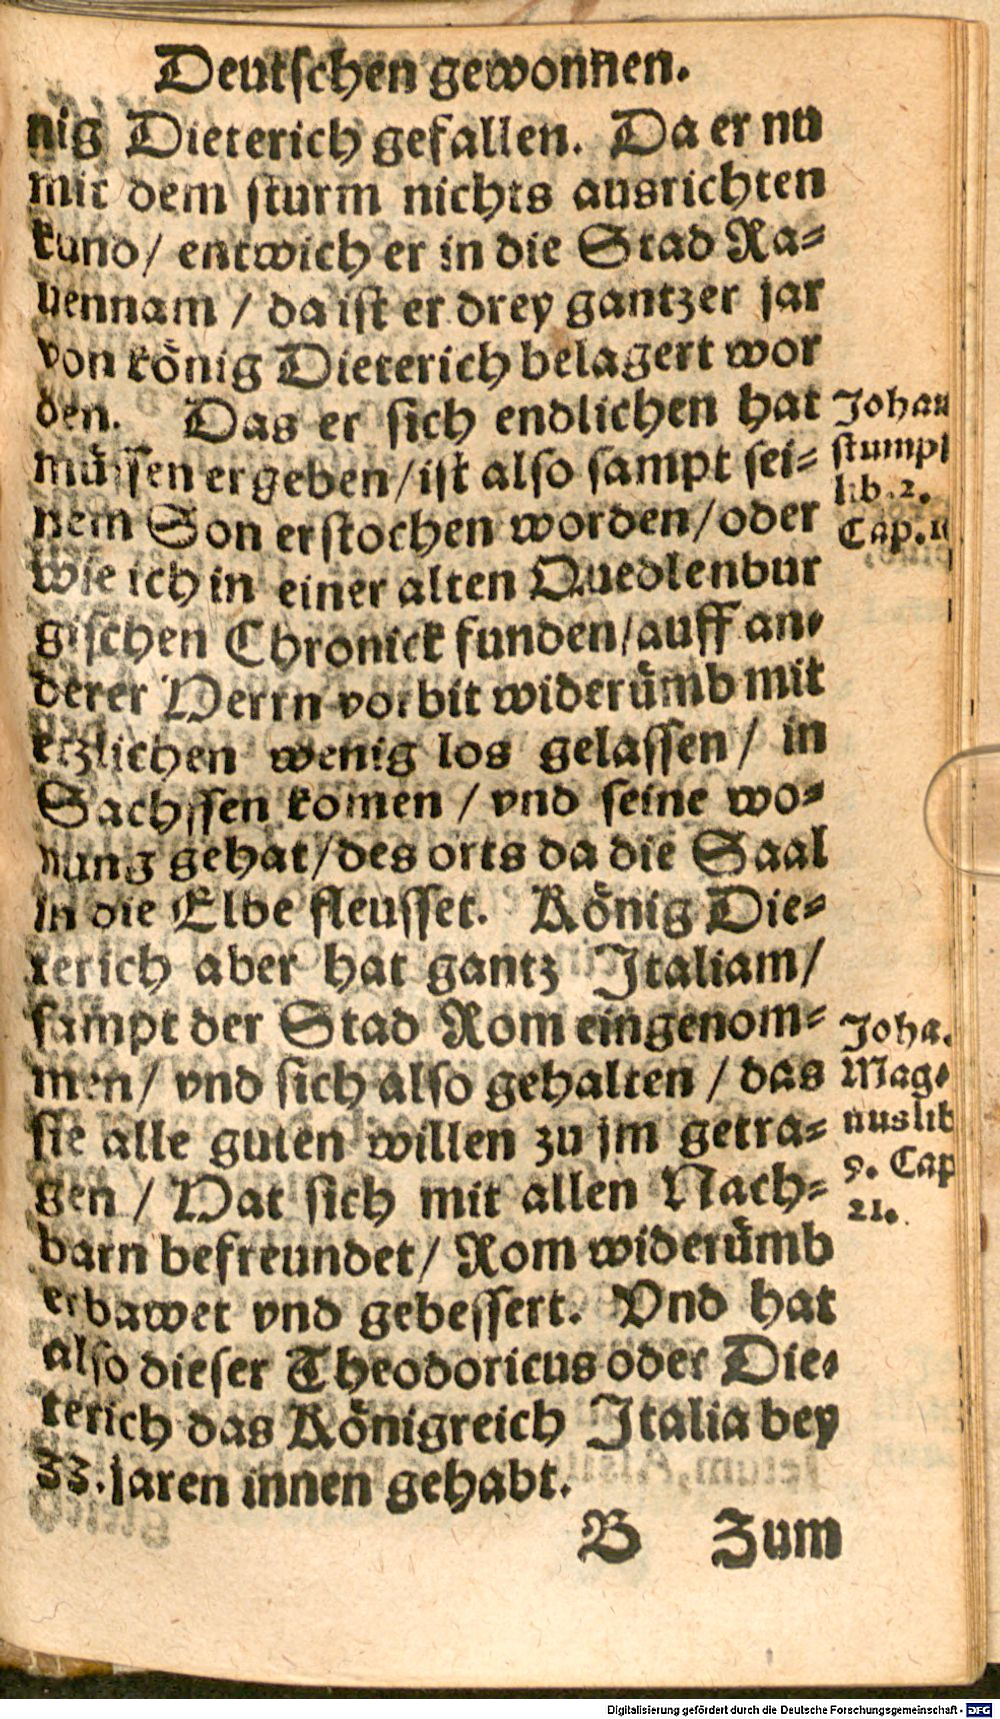 Deutschen gewonnen.
nig Dieterich gefallen. Da er nu
mit dem sturm nichts ausrichten
kund/ entwich er in die Stad Ra=
uennam / da ist er drey gantzer jar
von könig Dieterich belagert wor
den. Das er sich endlichen hat
müssen ergeben/ist also sampt sei=
nem Son erstochen worden/oder
wie ich in einer alten Quedlenbur
gischen Chronick funden/auff an=
derer Herrn vorbit widerümb mit
etzlichen wenig los gelassen/ in
Sachssen komen / vnd seine wo=
nung gehat/des orts da die Saal
in die Elbe fleusset. König Die=
terich aber hat gantz Italiam/
sampt der Stad Rom eingenom=
men/ vnd sich also gehalten / das
sie alle guten willen zu jm getra=
gen / Hat sich mit allen Nach=
barn befreundet/ Rom widerümb
erbawet vnd gebessert. Vnd hat
also dieser Theodoricus oder Die=
terich das Königreich Italia bey
33. jaren innen gehabt.
B Zum
Johan
stumpf
lib. 2.
Cap.
Joha.
Mag=
nus lib
9. Cap
21.
Digitalisierung gefördert durch die Deutsche Forschungsgemeinschaft - DFG